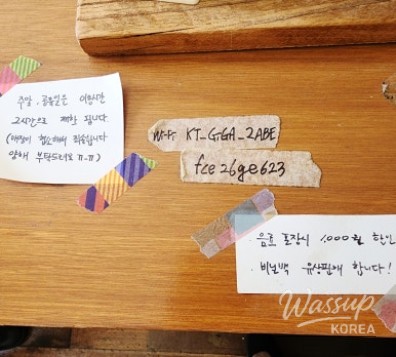 주말, 공휴일은 이용시간
2시간으로 제한 됩니다.
(매장이 협소하여 죄송합니다
양해 부탁드려요 ㅠ_ㅠ)
Wi-Fi KT_GiGA_2ABE
fce26ge623
· 음료 포장시 1,000원 할인
· 비닐백 유상판매 합니다!
Wassup
KOREA